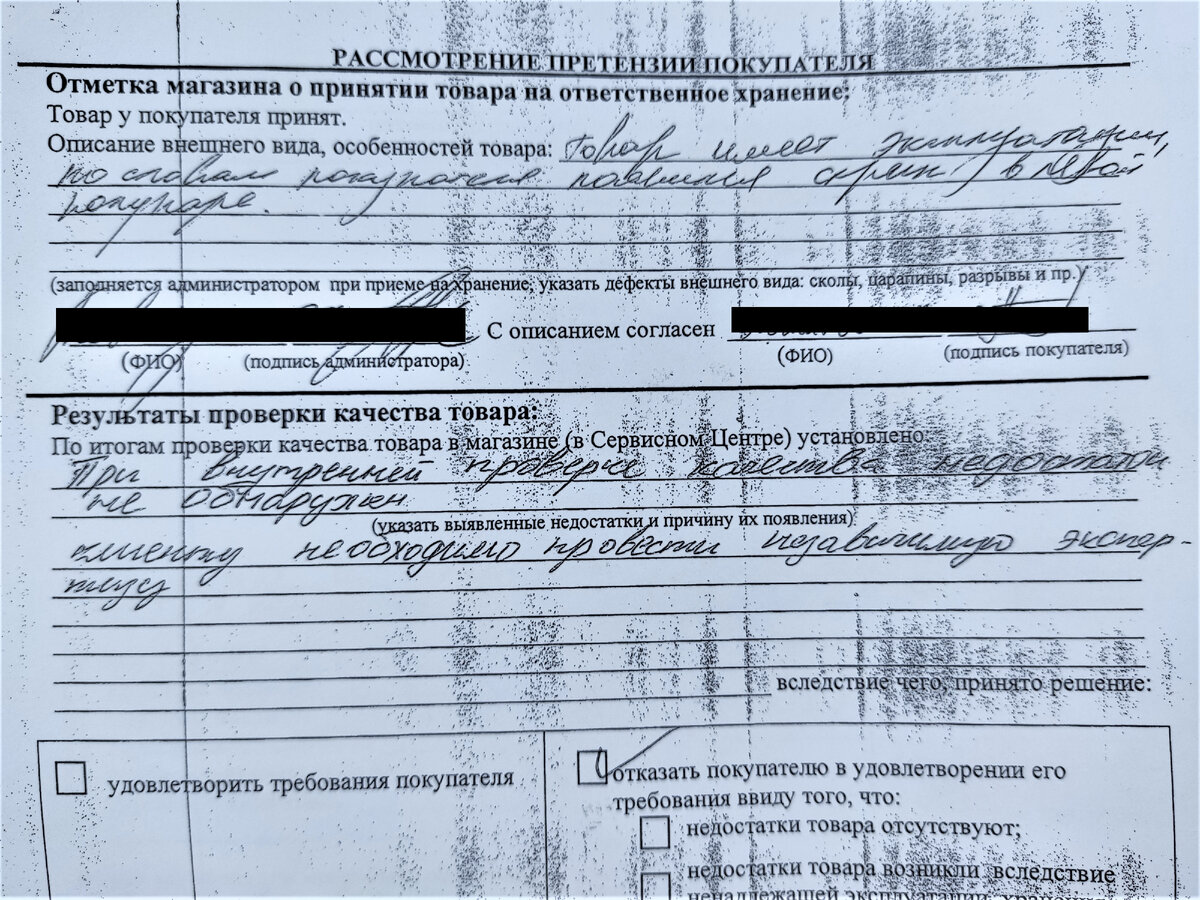 РАССМОТРЕНИЕ ПРЕТЕНЗИИ ПОКУПАТЕЛЯ
Отметка магазина о принятии товара на ответственное хранение:
Товар у покупателя принят.
Описание внешнего вида, особенностей товара: Товар имеет эксплуатации,
по словам покупателя появился скрип в левой
полупаре.
(заполняется администратором при приеме на хранение, указать дефекты внешнего вида: сколы, царапины, разрывы и пр.)
С описанием согласен
(ФИО) (подпись администратора) (ФИО) (подпись покупателя)
Результаты проверки качества товара:
По итогам проверки качества товара в магазине (в Сервисном Центре) установлено:
При внутренней проверке качества недостаток
не обнаружен
(указать выявленные недостатки и причину их появления)
клиенту необходимо провести независимую экспер-
тизу
вследствие чего, принято решение:
удовлетворить требования покупателя
отказать покупателю в удовлетворении его
требования ввиду того, что:
недостатки товара отсутствуют;
недостатки товара возникли вследствие
ненадлежащей эксплуатации,